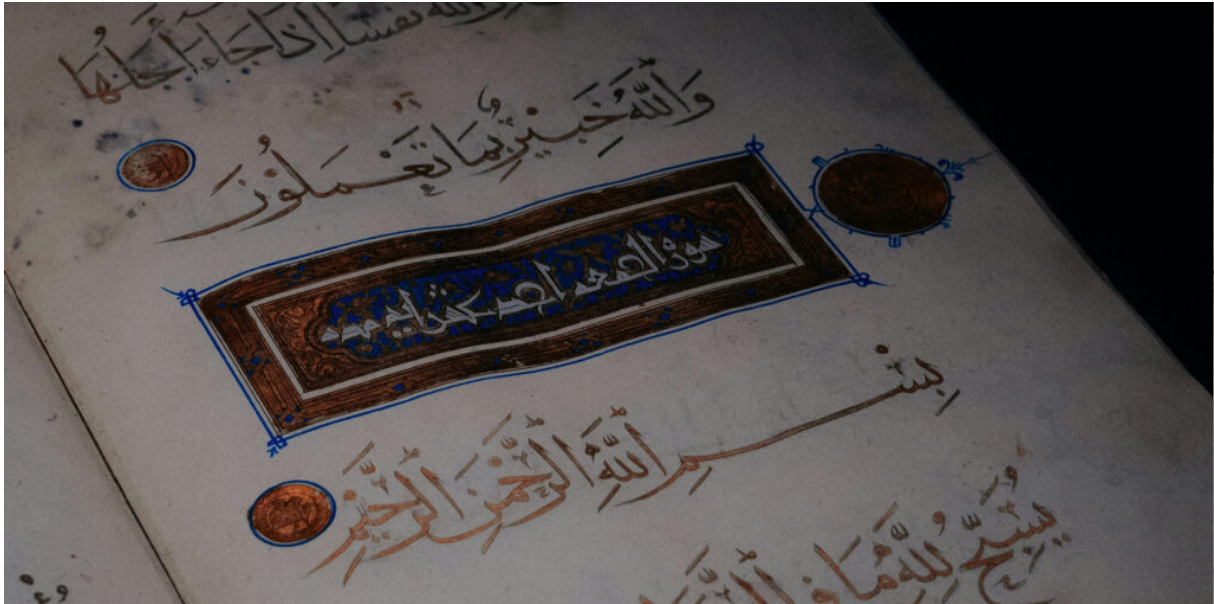 اللَّهُ نَفْسًا إِذَا جَاءَ أَجَلُهَا
وَاللَّهُ خَبِيرٌ بِمَا تَعْمَلُونَ
سورة عشر ايه
بِسْمِ اللَّهِ الرَّحْمَنِ الرَّحِيمِ
يُسَبِّحُ لِلَّهِ مَا فِي